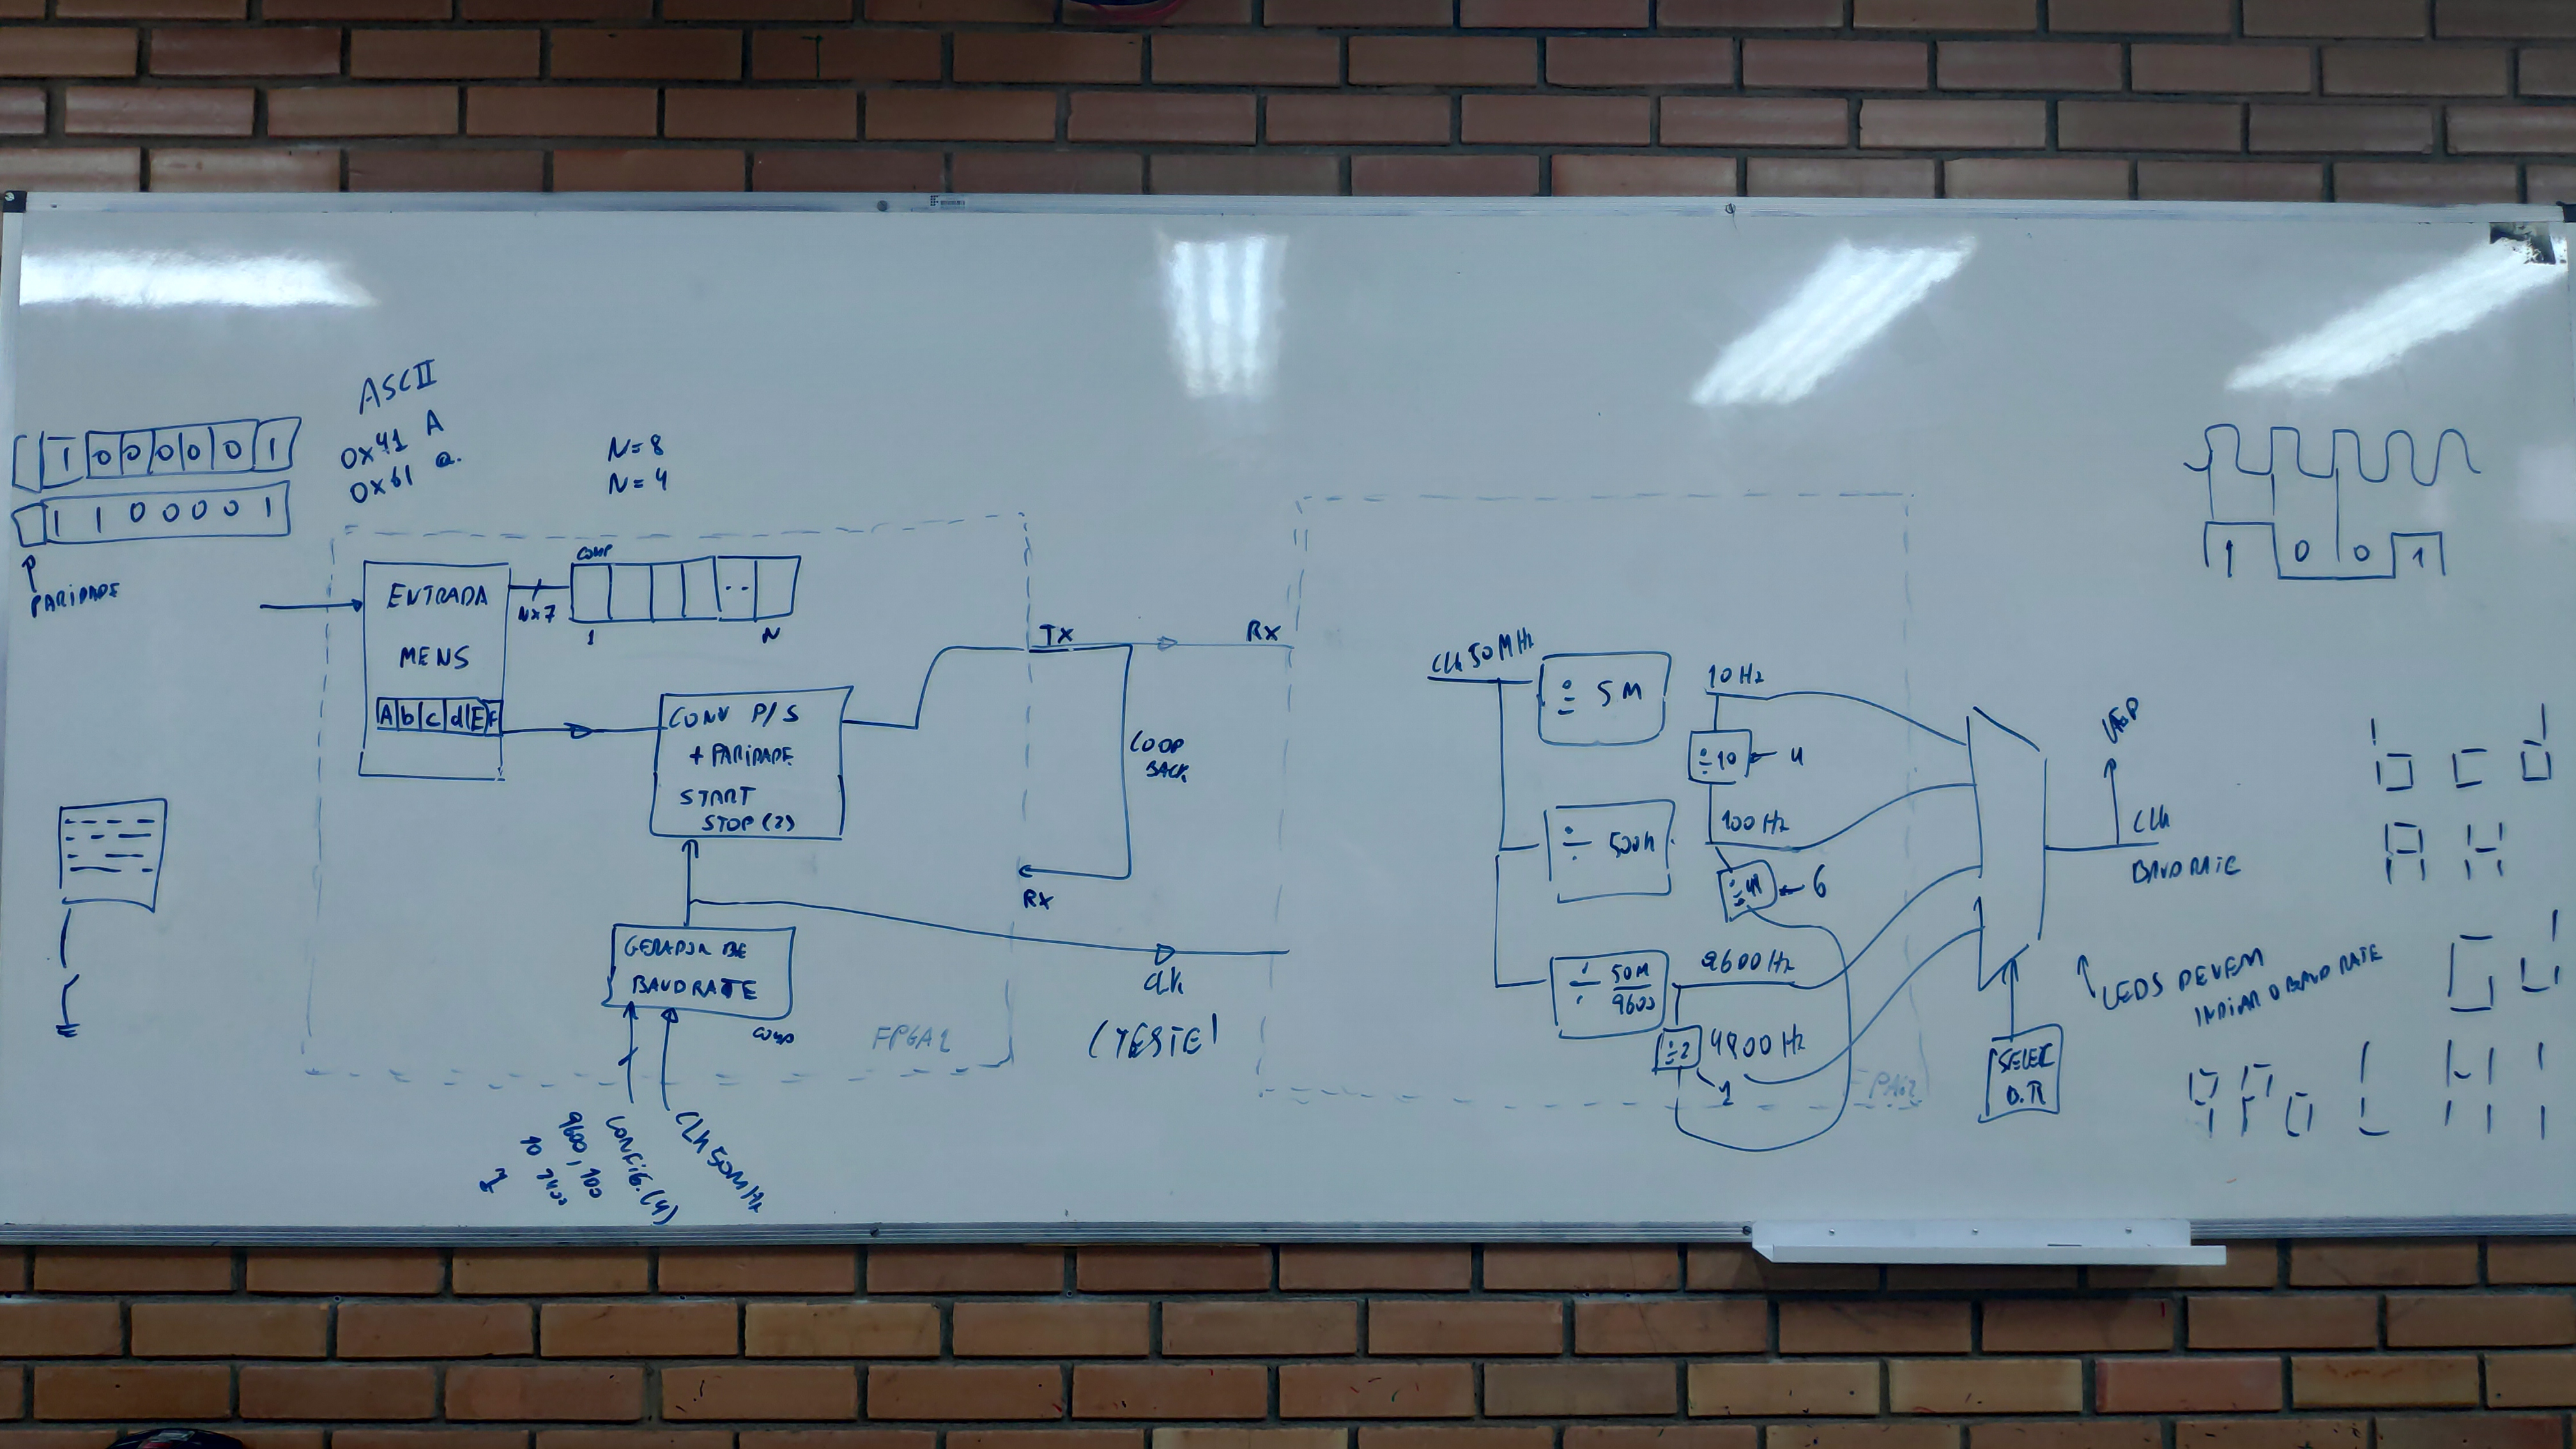 ASCII
0x41 A
0x61 a
1 0 0 0 0 0 1
1 1 0 0 0 0 1
PARIDADE
N=8
N=4
ENTRADA
MENS
A b c d E F
N×7
COMP
1
N
CONV P/S
+ PARIDADE
START
STOP (2)
TX
RX
LOOP
BACK
RX
GERADOR DE
BAUDRATE
COMP
FPGA1
CLK
(TESTE)
CONFIG. (4)
9600, 100
10
CLK 50MHz
CLK 50MHz
÷ 5M
10 Hz
÷10
4
÷ 500k
100 Hz
6
÷ 50M
9600
9600 Hz
÷2
4800 Hz
1
SELEC
B.R
CLK
BAUDRATE
LEDS DEVEM
INDICAR O BAUD RATE
1 0 0 1